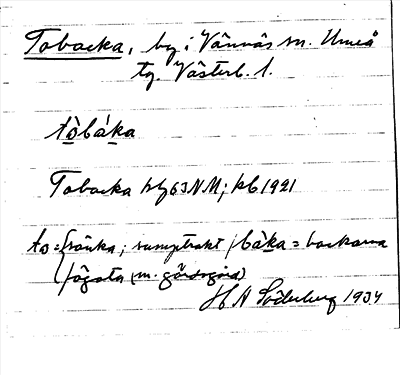 Tobacka, by i Vännäs sn. Umeå
tg. Västerb. l.
tòbáka
Tobacka hfl 63 NM; kb 1921
to = sänka; sumptrakt / bàka = backarna
H A Söderberg 1934